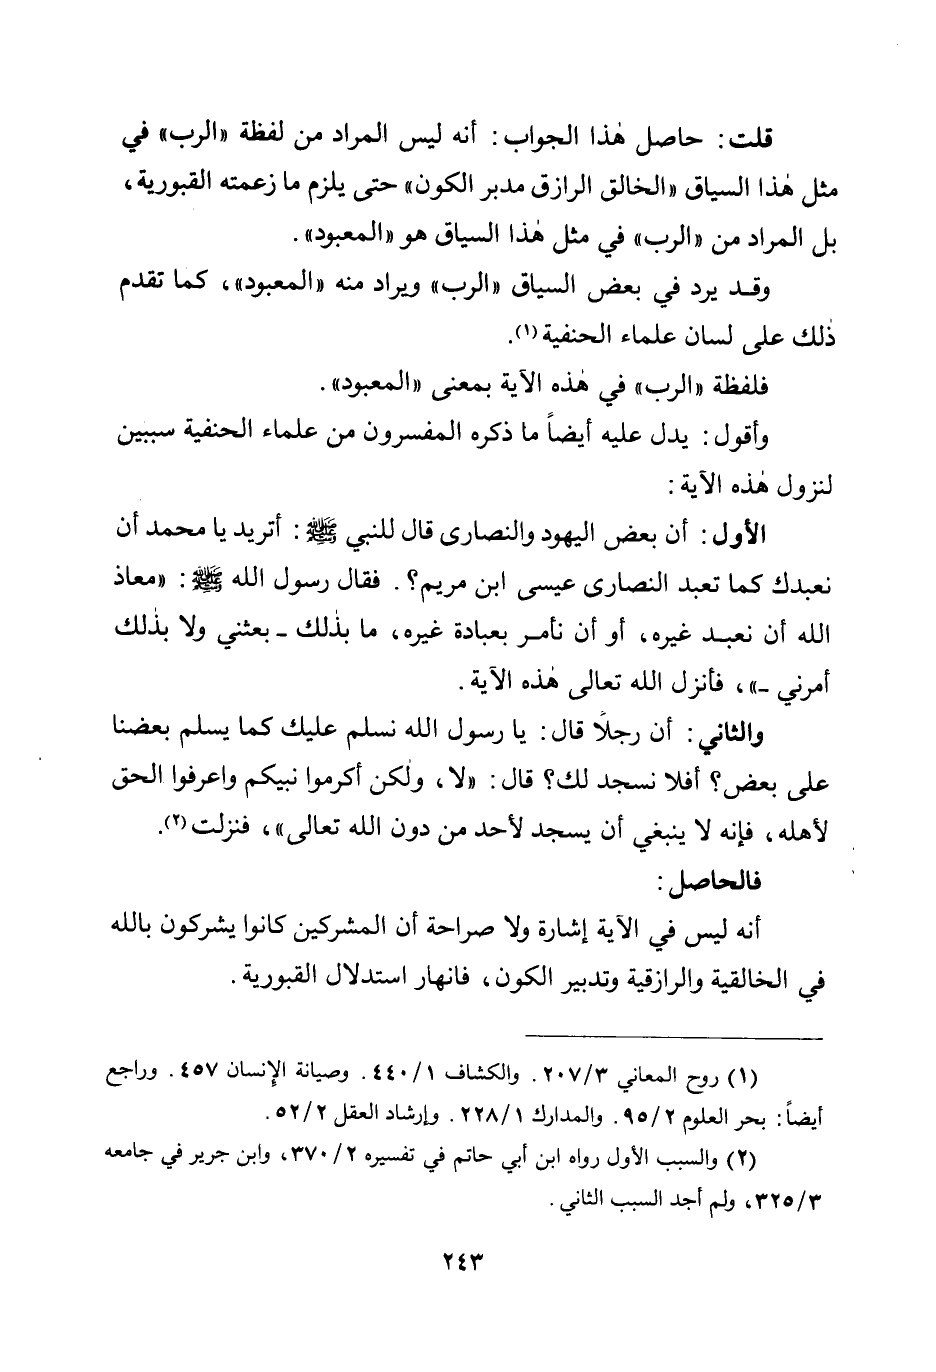 قلت: حاصل هٰذا الجواب: أنه ليس المراد من لفظة «الرب» في
مثل هٰذا السياق «الخالق الرازق مدبر الكون» حتى يلزم ما زعمته القبورية،
بل المراد من «الرب» في مثل هٰذا السياق هو «المعبود».
وقد يرد في بعض السياق «الرب» ويراد منه «المعبود»، كما تقدم
ذٰلك على لسان علماء الحنفية(١).
فلفظة «الرب» في هٰذه الآية بمعنى «المعبود».
وأقول: يدل عليه أيضاً ما ذكره المفسرون من علماء الحنفية سببين
لنزول هٰذه الآية:
الأول: أن بعض اليهود والنصارى قال للنبي ﷺ: أتريد يا محمد أن
نعبدك كما تعبد النصارى عيسى ابن مريم؟. فقال رسول الله ﷺ: «معاذ
الله أن نعبد غيره، أو أن نأمر بعبادة غيره، ما بذٰلك ـ بعثني ولا بذٰلك
أمرني ـ»، فأنزل الله تعالى هٰذه الآية.
والثاني: أن رجلًا قال: يا رسول الله نسلم عليك كما يسلم بعضنا
على بعض؟ أفلا نسجد لك؟ قال: «لا، ولٰكن أكرموا نبيكم واعرفوا الحق
لأهله، فإنه لا ينبغي أن يسجد لأحد من دون الله تعالى»، فنزلت(٢).
فالحاصل:
أنه ليس في الآية إشارة ولا صراحة أن المشركين كانوا يشركون بالله
في الخالقية والرازقية وتدبير الكون، فانهار استدلال القبورية.
(١) روح المعاني ٣/ ٢٠٧. والكشاف ١/ ٤٤٠. وصيانة الإنسان ٤٥٧. وراجع
أيضاً: بحر العلوم ٢/ ٩٥. والمدارك ١/ ٢٢٨. وإرشاد العقل ٢/ ٥٢.
(٢) والسبب الأول رواه ابن أبي حاتم في تفسيره ٢/ ٣٧٠، وابن جرير في جامعه
٣/ ٣٢٥، ولم أجد السبب الثاني.
٢٤٣